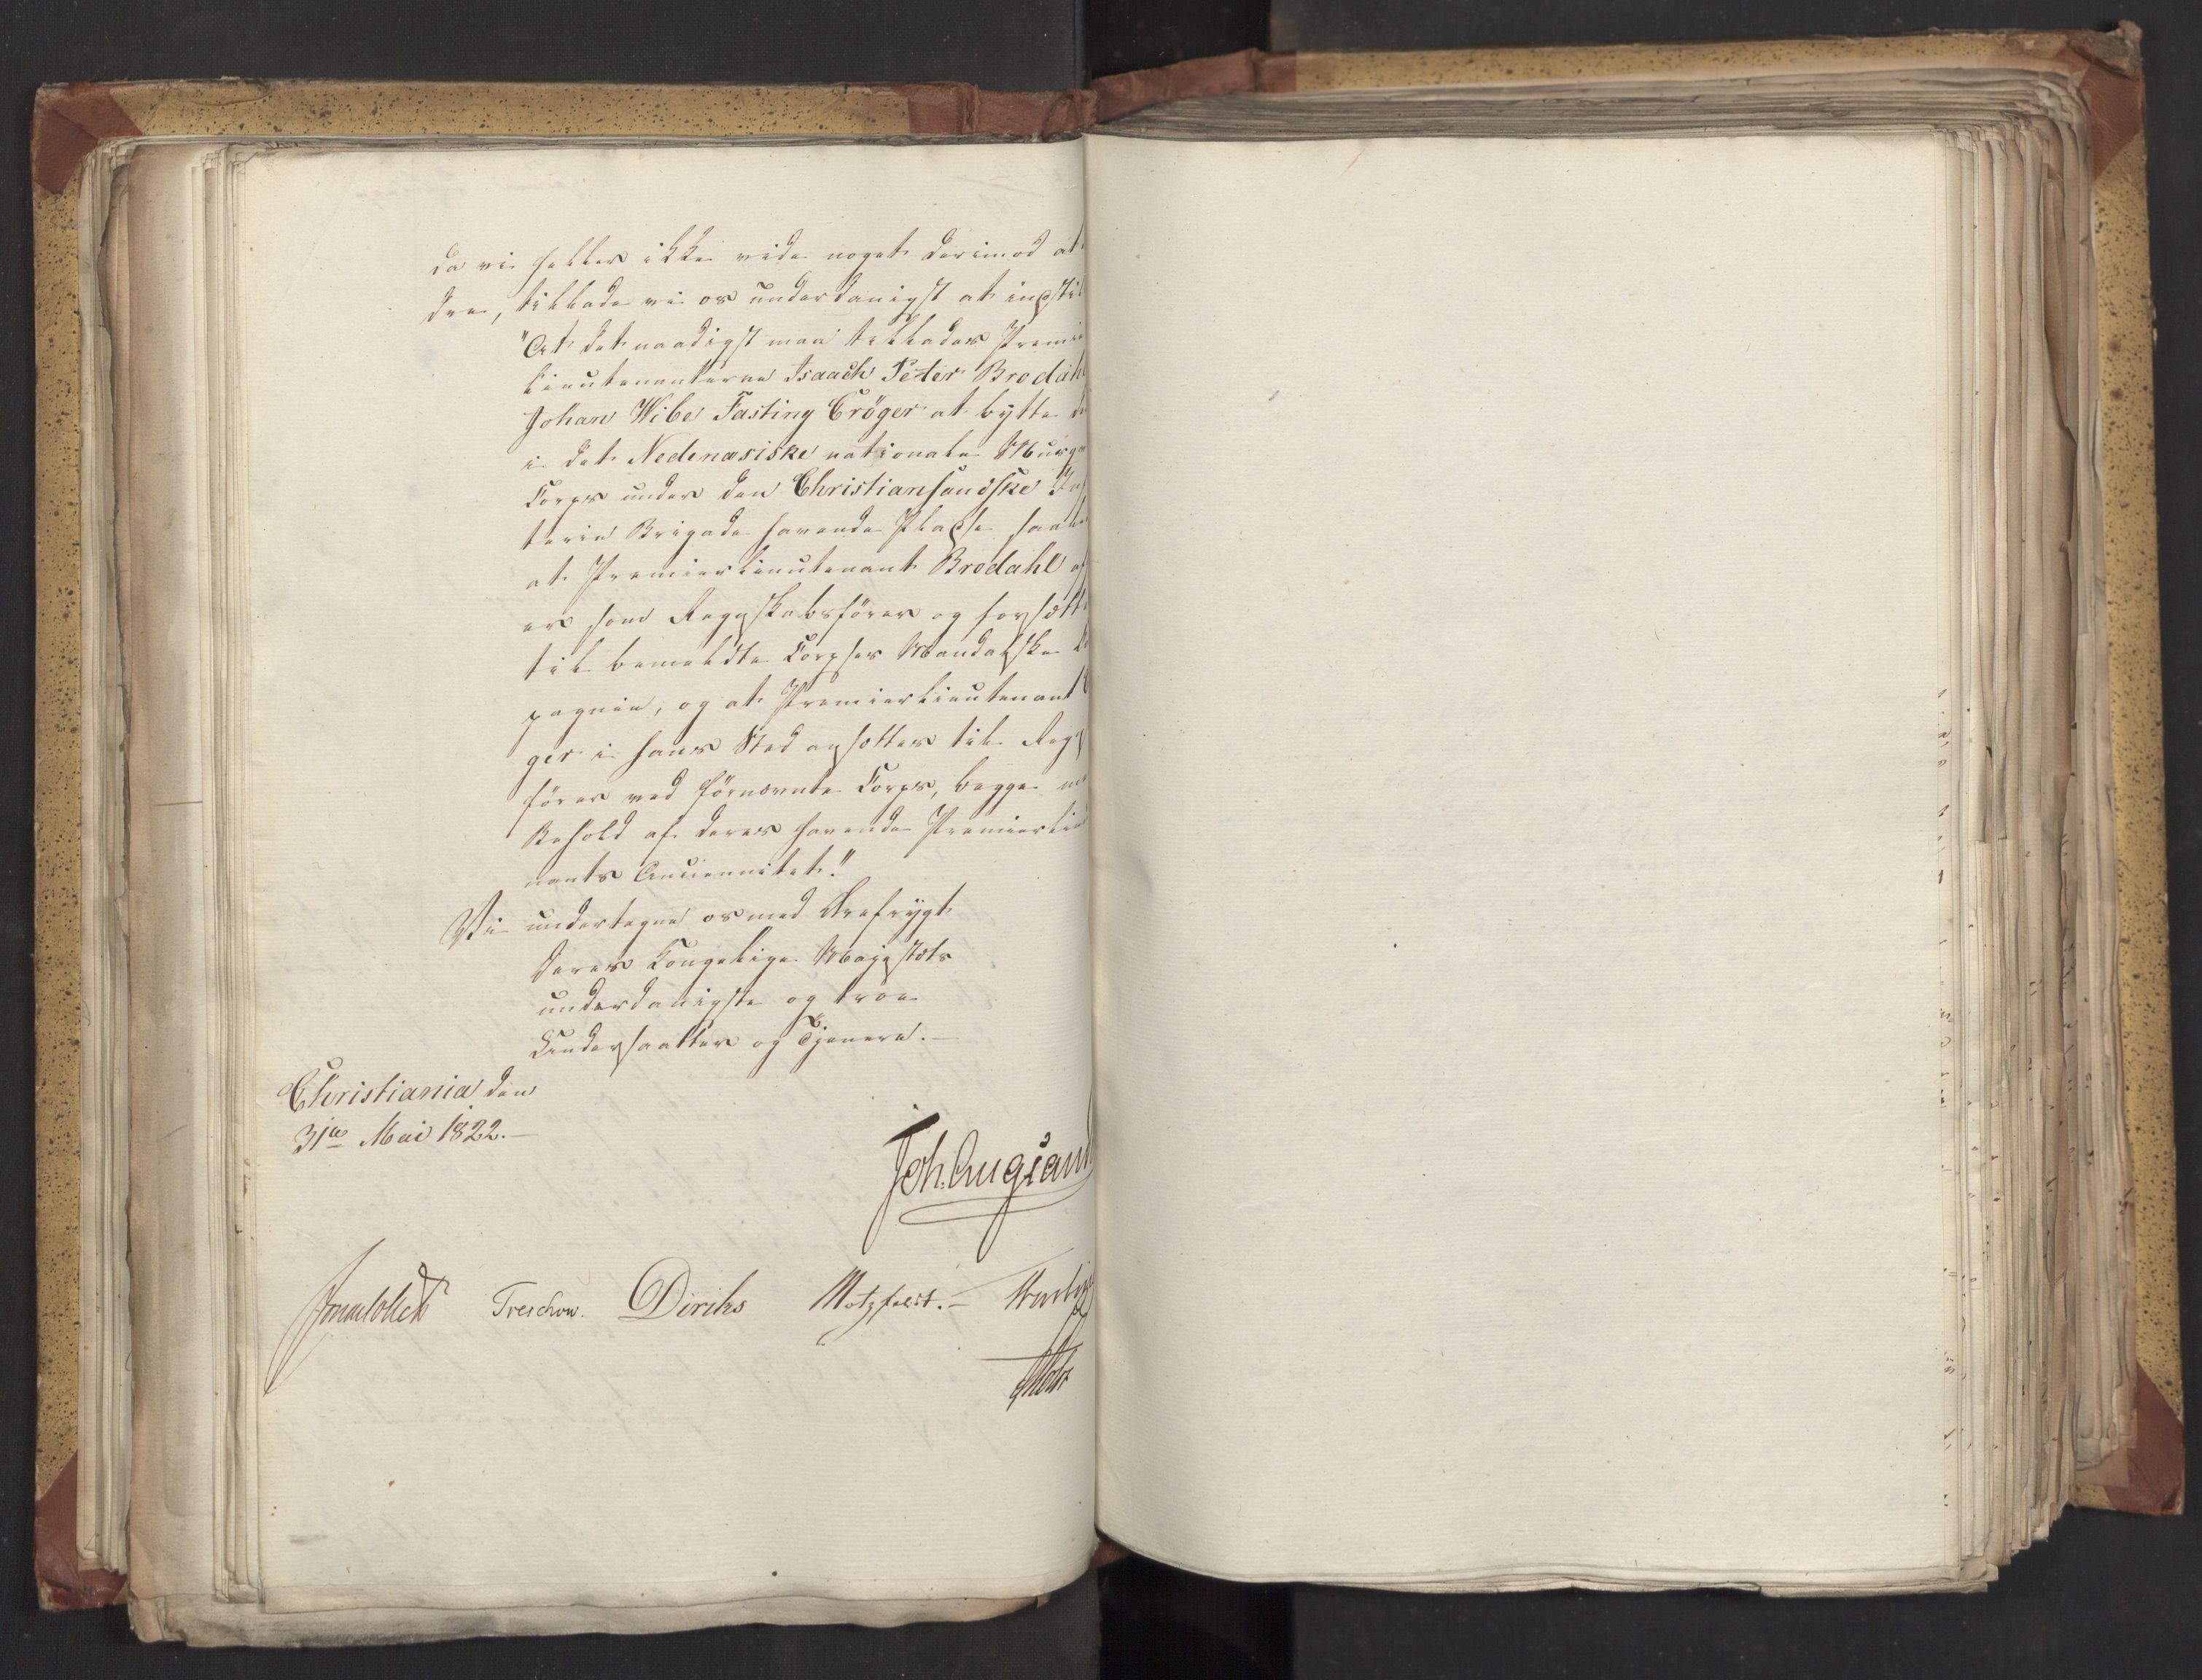 da vi heller ikke vide noget derimod at
dre, tillade vi os underdanigst at indstil
"At det naadigst maa tillades Premi
Lieutenanterne Isaach Peter Brodahl
Johan Wibe Fasting Cröger at bytte de
i det Nedenæsiske nationale Musqe
Corps under den Christiansandske Inf
terie Brigade havende Pladse saale
at Premierlieutenant Brodahl af
er som Regnskabsfører og forsætt
til bemeldte Corpses Mandalske
pagnie, og at Premierlieutenant
ger i hans Sted ansættes til Regn
fører ved førnævnte Corps, begge
Behold af deres havende Premierlieu
nants Anciennitet."
Vi undertegne os med Ærefrygt
Deres Kongelige Majestæts
underdanigste og troe
Undersaatter og Tjenere.
Christiania den
31te Mai 1822.
Joh. Aug Sand
Treschow. Diriks Motzfeldt.